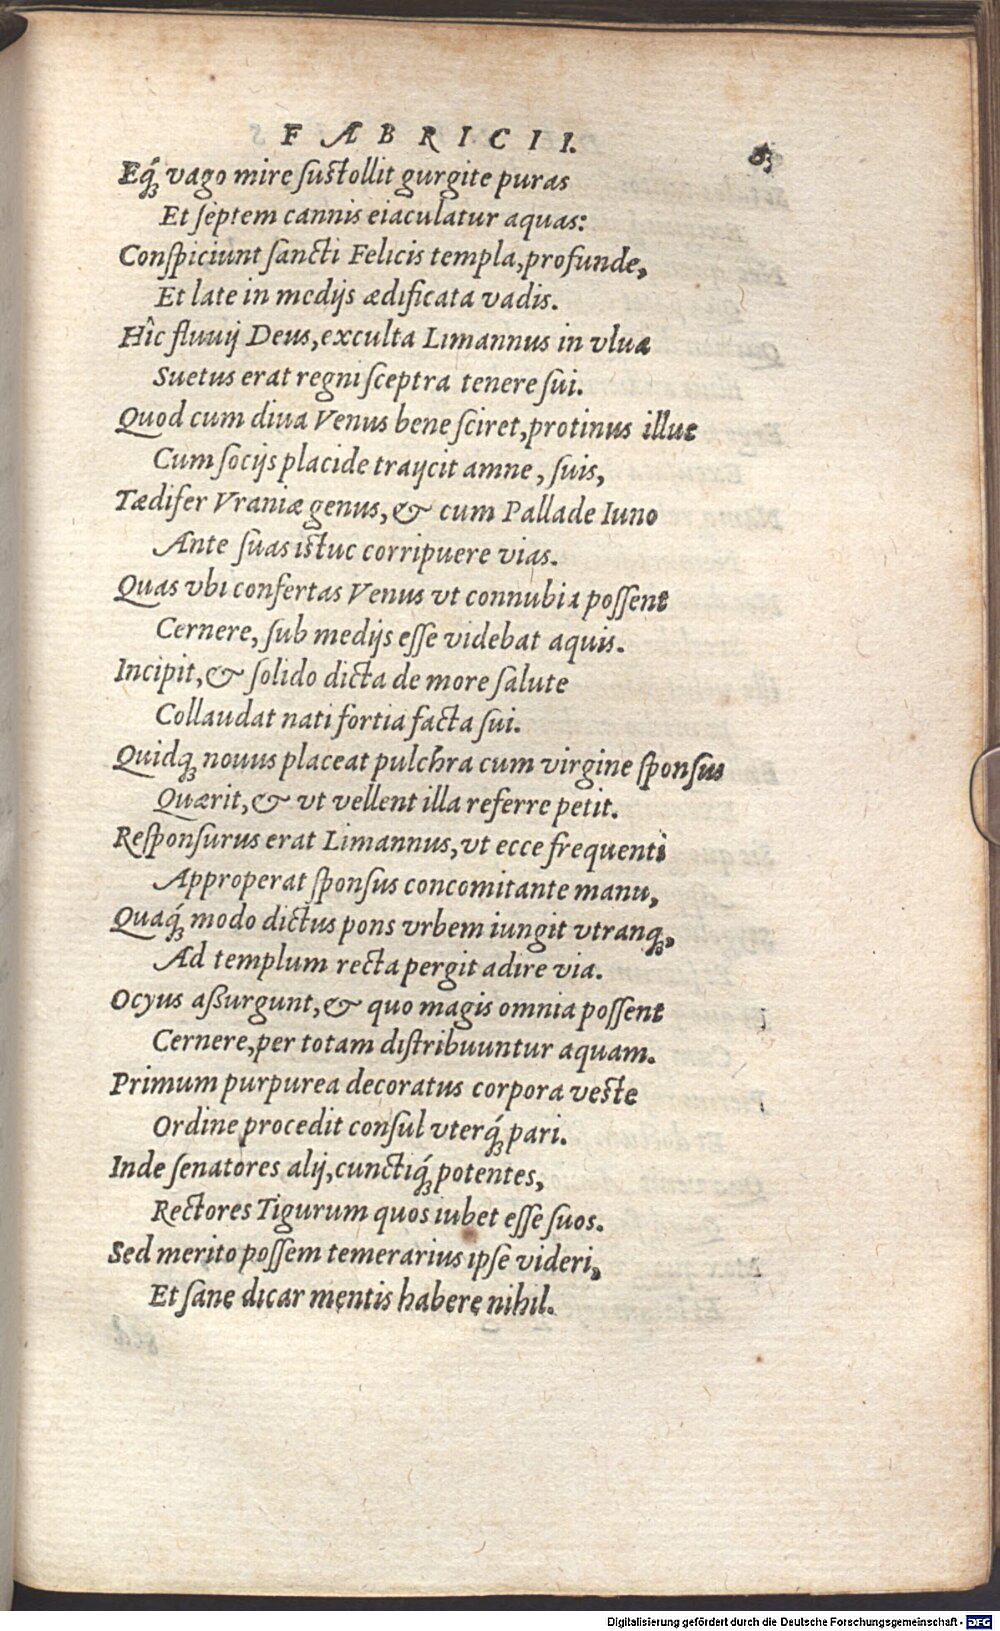 FABRICII.
Eq́ꝫ vago mire ſustollit gurgite puras
Et ſeptem cannis eiaculatur aquas:
Conſpiciunt ſancti Felicis templa, profunde,
Et late in medijs ædificata vadis.
Hîc fluuij Deus, exculta Limannus in vlua
Suetus erat regni ſceptra tenere ſui.
Quod cum diua Venus bene ſciret, protinus illuc
Cum ſocijs placide traijcit amne, ſuis,
Tædifer Vraniæ genus, & cum Pallade Iuno
Ante ſuas istuc corripuere vias.
Quas vbi confertas Venus vt connubia poſſent
Cernere, ſub medijs eſſe videbat aquis.
Incipit, & ſolido dicta de more ſalute
Collaudat nati fortia facta ſui.
Quidqꝫ nouus placeat pulchra cum virgine ſponſus
Quærit, & vt vellent illa referre petit.
Reſponſurus erat Limannus, vt ecce frequenti
Approperat ſponſus concomitante manu,
Quaq́ꝫ modo dictus pons vrbem iungit vtranqꝫ,
Ad templum recta pergit adire via.
Ocyus aßurgunt, & quo magis omnia poſſent
Cernere, per totam diſtribuuntur aquam.
Primum purpurea decoratus corpora veste
Ordine procedit conſul vterq́ꝫ pari.
Inde ſenatores alij, cunctiq́ꝫ potentes,
Rectores Tigurum quos iubet eſſe ſuos.
Sed merito poſſem temerarius ipſe videri,
Et ſane dicar mentis habere nihil.
Digitalisierung gefördert durch die Deutsche Forschungsgemeinschaft - DFG